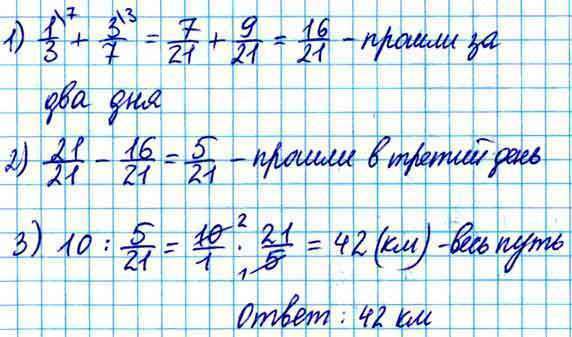 1) 1\7/3 + 3\3/7 = 7/21 + 9/21 = 16/21 - прошли за
два дня
2) 21/21 - 16/21 = 5/21 - прошли в третий день
3) 10 : 5/21 = 10 2/1 · 21/5 1 = 42 (км) - весь путь
Ответ: 42 км